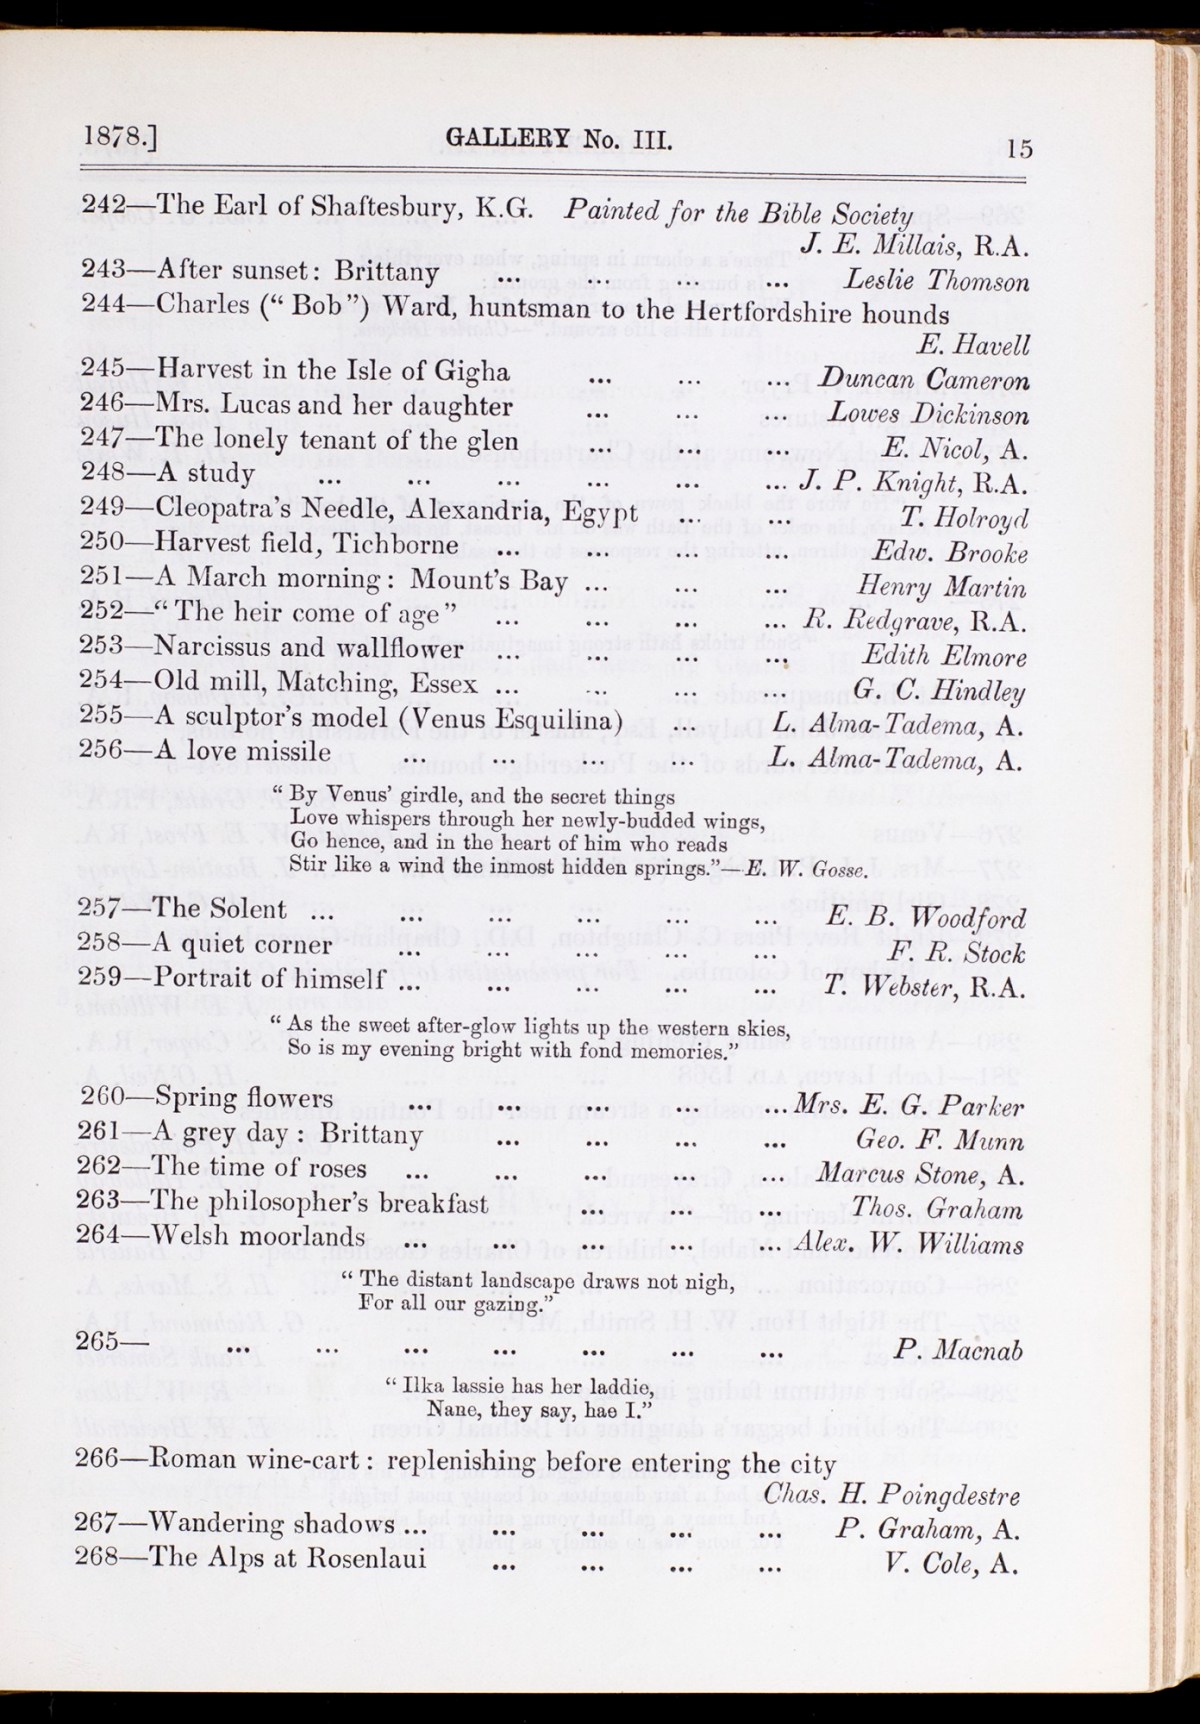 1878.] GALLERY No. III. 15
242—The Earl of Shaftesbury, K.G. Painted for the Bible Society
J. E. Millais, R.A.
243—After sunset: Brittany ... ... ... ... Leslie Thomson
244—Charles (“Bob”) Ward, huntsman to the Hertfordshire hounds
E. Havell
245—Harvest in the Isle of Gigha ... ... ... Duncan Cameron
246—Mrs. Lucas and her daughter ... ... ... Lowes Dickinson
247—The lonely tenant of the glen ... ... ... E. Nicol, A.
248—A study ... ... ... ... ... ... J. P. Knight, R.A.
249—Cleopatra’s Needle, Alexandria, Egypt ... ... T. Holroyd
250—Harvest field, Tichborne ... ... ... ... Edw. Brooke
251—A March morning: Mount’s Bay ... ... ... Henry Martin
252—“The heir come of age” ... ... ... ... R. Redgrave, R.A.
253—Narcissus and wallflower ... ... ... ... Edith Elmore
254—Old mill, Matching, Essex ... ... ... ... G. C. Hindley
255—A sculptor’s model (Venus Esquilina) ... L. Alma-Tadema, A.
256—A love missile ... ... ... ... L. Alma-Tadema, A.
“By Venus’ girdle, and the secret things
Love whispers through her newly-budded wings,
Go hence, and in the heart of him who reads
Stir like a wind the inmost hidden springs.”—E. W. Gosse.
257—The Solent ... ... ... ... ... ... E. B. Woodford
258—A quiet corner ... ... ... ... ... F. R. Stock
259—Portrait of himself ... ... ... ... ... T. Webster, R.A.
“As the sweet after-glow lights up the western skies,
So is my evening bright with fond memories.”
260—Spring flowers ... ... ... ... ... Mrs. E. G. Parker
261—A grey day: Brittany ... ... ... ... Geo. F. Munn
262—The time of roses ... ... ... ... ... Marcus Stone, A.
263—The philosopher’s breakfast ... ... ... Thos. Graham
264—Welsh moorlands ... ... ... ... ... Alex. W. Williams
“The distant landscape draws not nigh,
For all our gazing.”
265— ... ... ... ... ... ... ... P. Macnab
“Ilka lassie has her laddie,
Nane, they say, hae I.”
266—Roman wine-cart: replenishing before entering the city
Chas. H. Poingdestre
267—Wandering shadows ... ... ... ... ... P. Graham, A.
268—The Alps at Rosenlaui ... ... ... ... V. Cole, A.